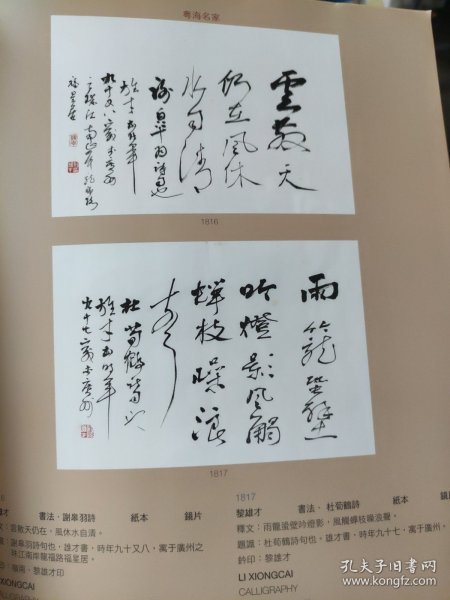 粤海名家
雲散天
仍在風休
水自清
謝皋羽詩句也
雄才書時年
九十又八寓於廣州
之珠江南岸龍福路
福星居
1816
雨籠蛩壁
吟燈影風觸
蟬枝噪浪
聲
杜荀鶴詩句
雄才書時年
九十七寓於廣州
1817
6
書法．謝皋羽詩 紙本 鏡片
釋文：雲散天仍在，風休水自清。
識：謝皋羽詩句也，雄才書，時年九十又八，寓于廣州之
珠江南岸龍福路福星居。
印：嶺南、黎雄才印
XIONGCAI
GRAPHY
1817
黎雄才 書法．杜荀鶴詩 紙本 鏡
釋文：雨籠蛩壁吟燈影，風觸蟬枝噪浪聲。
題識：杜荀鶴詩句也，雄才書，時年九十七，寓于廣州。
鈐印：黎雄才
LI XIONGCAI
CALLIGRAPHY
孔夫子旧书网